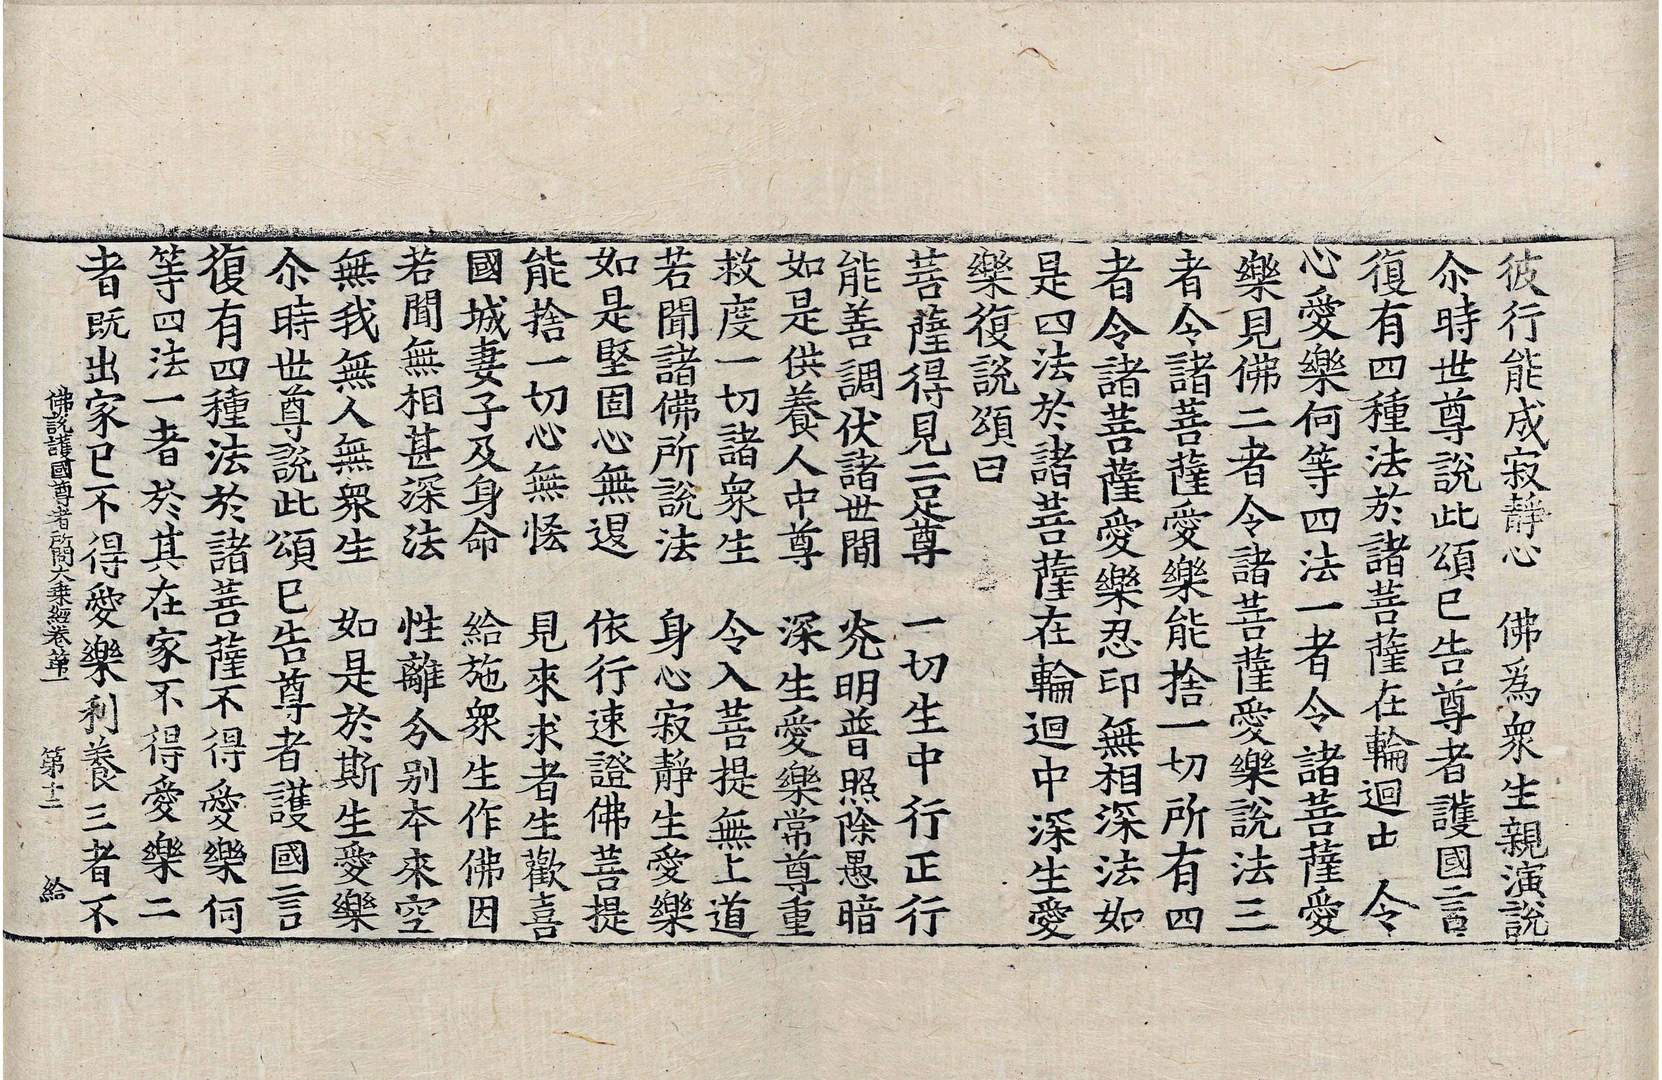 彼行能成寂靜心　佛為衆生親演說
尒時世尊說此頌已告尊者護國言
復有四種法於諸菩薩在輪迴出　令
心愛樂何等四法一者令諸菩薩愛
樂見佛二者令諸菩薩愛樂說法三
者令諸菩薩愛樂能捨一切所有四
者令諸菩薩愛樂忍印無相深法如
是四法於諸菩薩在輪迴中深生愛
樂復說頌曰
菩薩得見二足尊　一切生中行正行
能善調伏諸世間　光明普照除愚暗
如是供養人中尊　深生愛樂常尊重
救度一切諸衆生　令入菩提無上道
若聞諸佛所說法　身心寂靜生愛樂
如是堅固心無退　依行速證佛菩提
能捨一切心無恡　見來求者生歡喜
國城妻子及身命　給施衆生作佛因
若聞無相甚深法　性離分别本來空
無我無人無衆生　如是於斯生愛樂
尒時世尊說此頌已告尊者護國言
復有四種法於諸菩薩不得愛樂何
等四法一者於其在家不得愛樂二
者既出家已不得愛樂利養三者不
佛說護國尊者所問大乗經卷第一　第十二　給